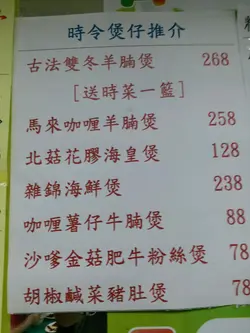 時令煲仔推介
古法雙冬羊腩煲 268
[送時菜一籃]
馬來咖喱羊腩煲 258
北菇花膠海皇煲 128
雜錦海鮮煲 238
咖喱薯仔牛腩煲 88
沙嗲金菇肥牛粉絲煲 78
胡椒鹹菜豬肚煲 78